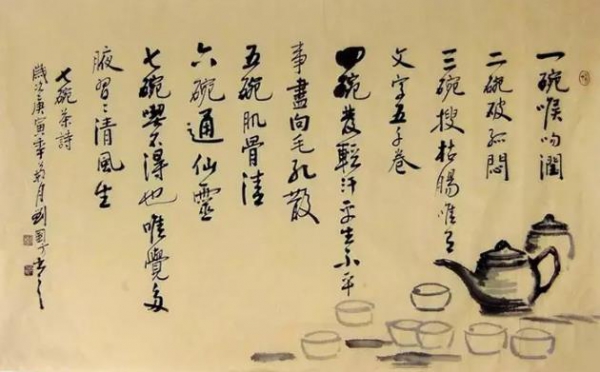 一碗喉吻潤
二碗破孤悶
三碗搜枯腸唯有
文字五千卷
四碗發輕汗平生不平
事盡向毛孔散
五碗肌骨清
六碗通仙靈
七碗喫不得也唯覺兩
腋習〻清風生
七碗茶詩
歲次庚寅年月劉國書之